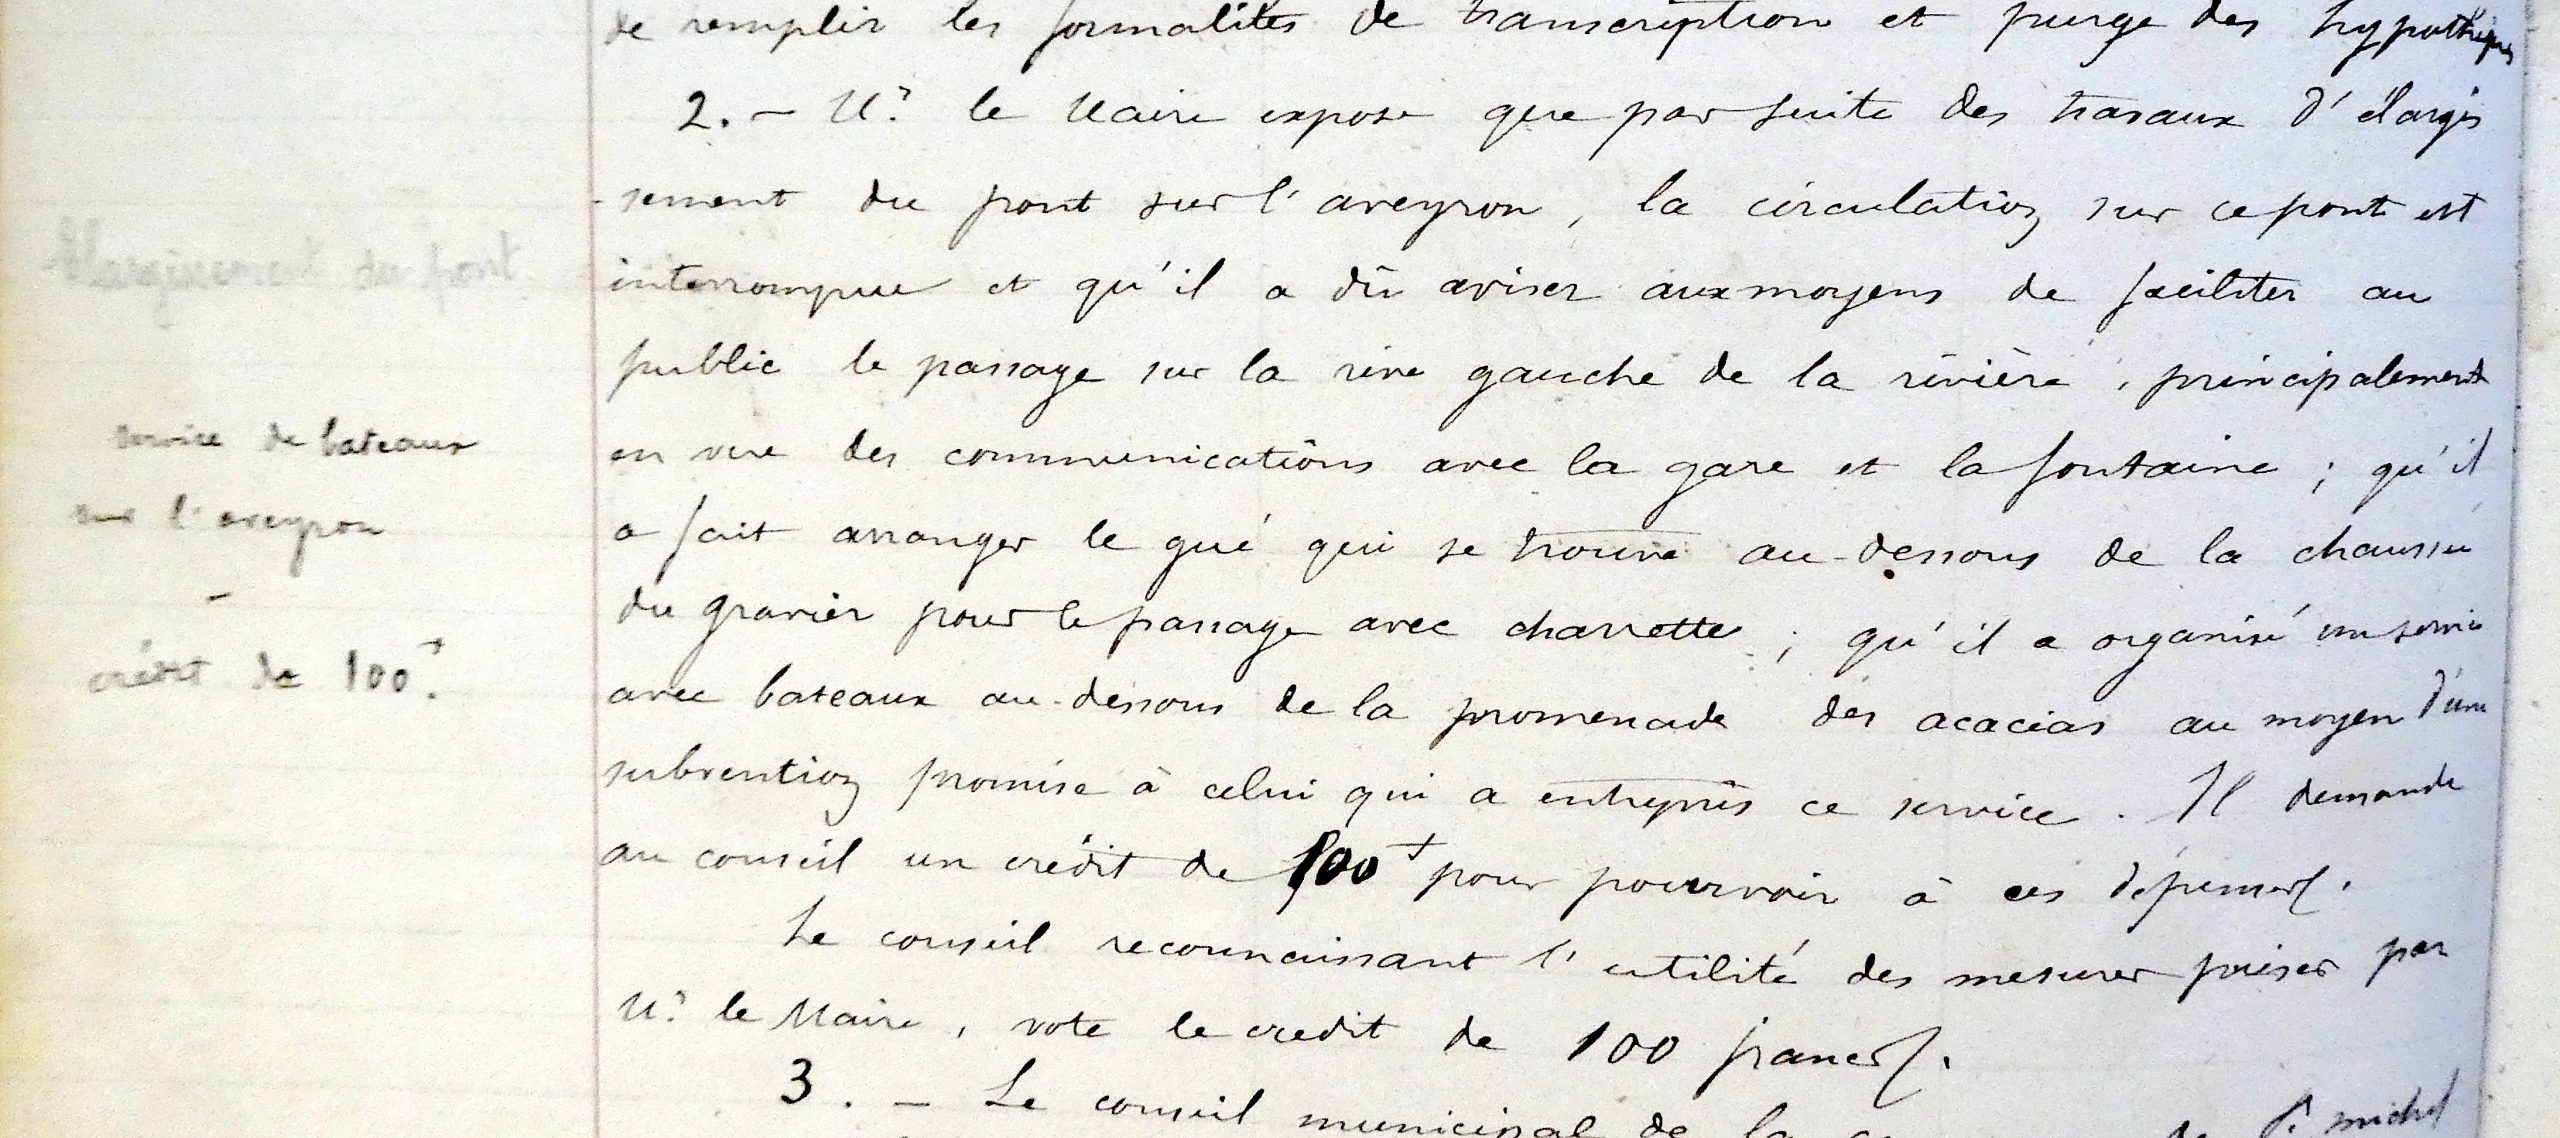 de remplir les formalités de transcription et purge des hypothèques
2. — Mr le Maire expose que par suite des travaux d'élargis
Élargissement du pont
-sement du pont sur l'aveyron, la circulation sur ce pont est
interrompue et qu'il a dû aviser aux moyens de faciliter au
public le passage sur la rive gauche de la rivière, principalement
service de bateaux
en vue des communications avec la gare et la fontaine ; qu'il
sur l'aveyron
a fait arranger le gué qui se trouve au-dessous de la chaussée
-
du gravier pour le passage avec charrette ; qu'il a organisé un service
crédit de 100f.
avec bateaux au-dessous de la promenade des acacias au moyen d'une
subvention promise à celui qui a entrepris ce service. Il demande
au conseil un crédit de 100f pour pourvoir à ces dépenses.
Le conseil reconnaissant l'utilité des mesures prises par
Mr le Maire, vote le credit de 100 francs.
3. — Le conseil municipal de la de St michel